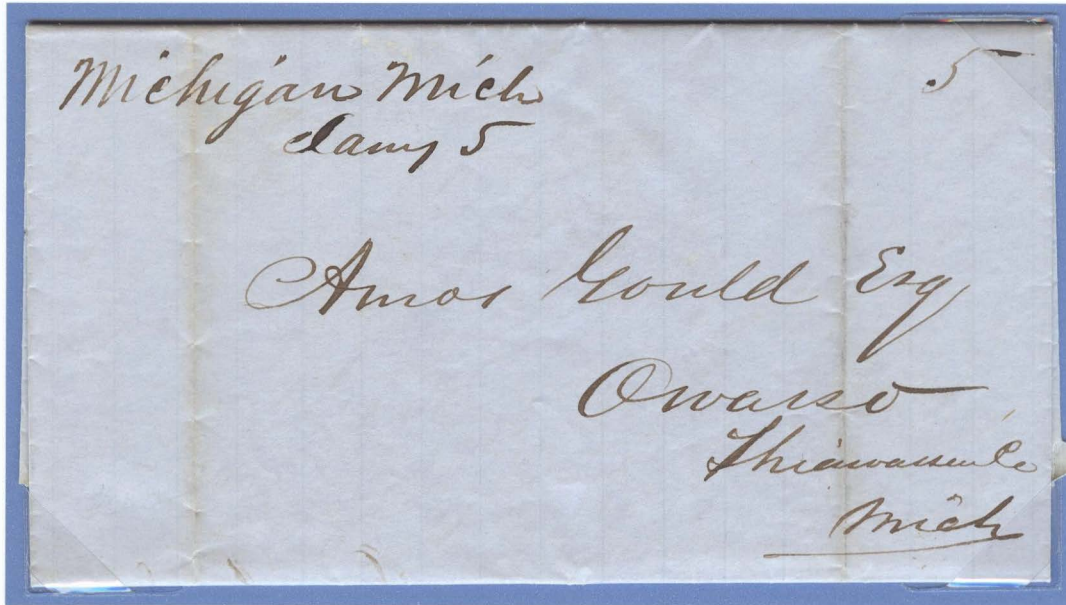 Michigan Mich
Jany 5
5
Amos Gould Esq
Owasso
Shiawassee Co
Mich